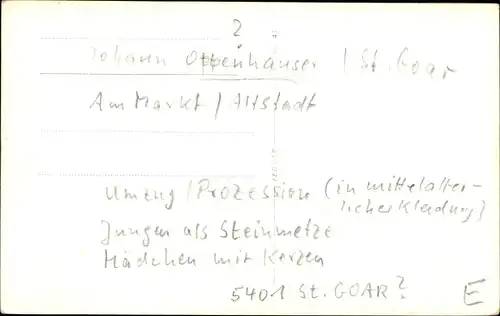 2
Johann Oppenhäuser / St. Goar
Am Markt / Altstadt
Umzug / Prozession (in mittelalter-
licher Kleidung)
Jungen als Steinmetze
Mädchen mit Kerzen
5401 St. GOAR?
E